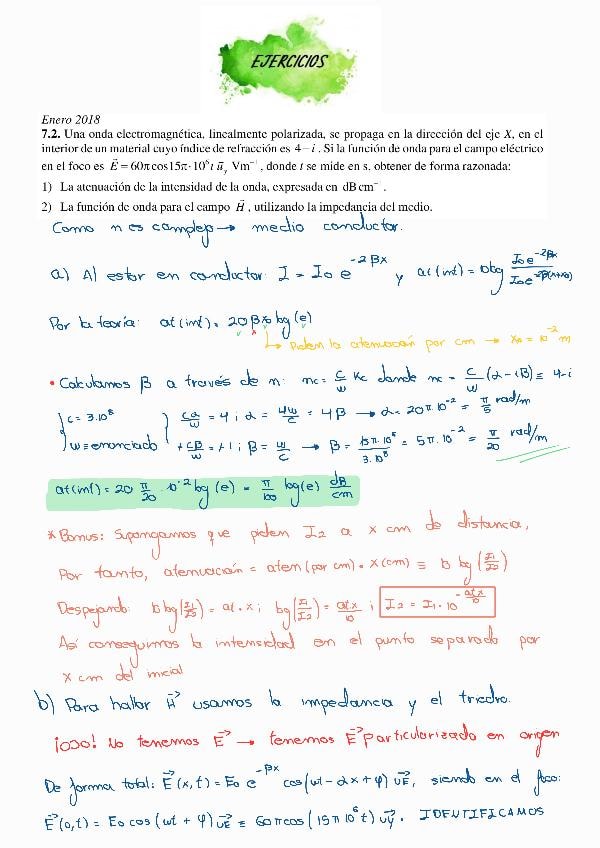 EJERCICIOS
Enero 2018
7.2. Una onda electromagnética, linealmente polarizada, se propaga en la dirección del eje X, en el
interior de un material cuyo índice de refracción es 4 − i . Si la función de onda para el campo eléctrico
en el foco es E⃗ = 60π cos15π·10⁶ t u⃗y Vm⁻¹, donde t se mide en s, obtener de forma razonada:
1) La atenuación de la intensidad de la onda, expresada en dB cm⁻¹ .
2) La función de onda para el campo H⃗ , utilizando la impedancia del medio.
Como n es complejo → medio conductor.
a) Al estar en conductor: I = I₀ e^(-2βx) y at(int) = 10 log (I₀e^(-2βx) / I₀e^(-2β(x+x₀)))
Por la teoría: at(int) = 20 β x₀ log(e)
↳ Piden la atenuación por cm → x₀ = 10⁻² m
• Calculamos β a través de n: nc = c/w Kc donde nc = c/w (α - iβ) ≡ 4-i
{ c = 3·10⁸ { cα/w = 4 ; α = 4w/c = 4β → α = 20π·10⁻² = π/5 rad/m
w ≡ enunciado +cβ/w = +1 ; β = w/c → β = 15π·10⁶/3·10⁸ = 5π·10⁻² = π/20 rad/m
at(int) = 20 π/20 · 10⁻² log(e) = π/100 log(e) dB/cm
* Bonus: Supongamos que piden I₂ a x cm de distancia,
Por tanto, atenuación = aten(por cm) · x(cm) ≡ 10 log (I₁/I₂)
Despejando: 10 log(I₁/I₂) = at·x ; log(I₁/I₂) = at x/10 ; I₂ = I₁·10^(-at x/10)
Así conseguimos la intensidad en el punto separado por
x cm del inicial
b) Para hallar H⃗ usamos la impedancia y el triedro.
¡OJO! No tenemos E⃗ → tenemos E⃗ particularizado en origen
De forma total: E⃗(x,t) = E₀ e^(-βx) cos(wt - αx + φ) u⃗E, siendo en el foco:
E⃗(0,t) = E₀ cos(wt + φ) u⃗E ≡ 60π cos(15π 10⁶ t) u⃗y. IDENTIFICAMOS